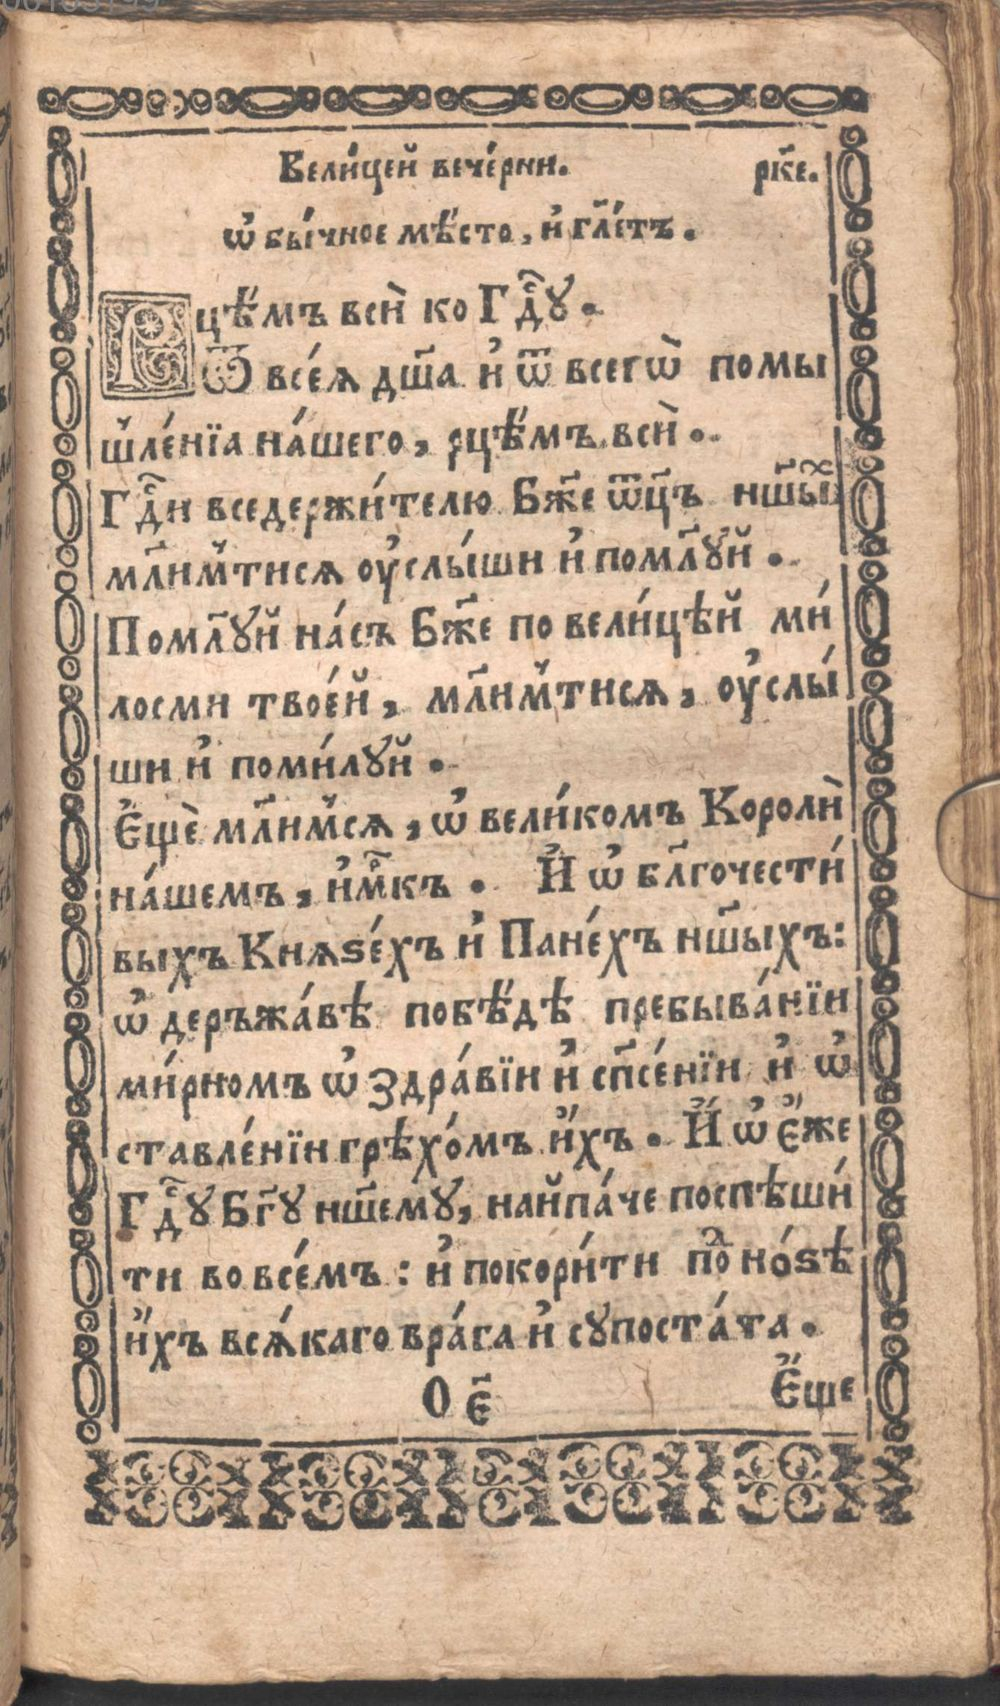 Вели́цей вече́рни. рк҃е.
ѡ҆бы́чное мѣ́сто, и҆ гл҃етъ.
Рцѣ́мъ всѝ ко Гдⷭ҇ꙋ.
Ѿ все́ѧ дш҃а и҆ ѿ всегѡ̀ помы
шле́нїа на́шего, рцѣ́мъ всѝ.
Гдⷭ҇и вседержи́телю Бж҃е ѿц҃ъ нш҃ыⷯ
мл҃имтисѧ оу҆слы́ши и҆ помл҃ꙋй.
Помл҃ꙋй на́съ Бж҃е по вели́цѣй ми́
лосми твое́й, мл҃имтисѧ, оу҆слы́
ши и҆ поми́лꙋй.
Е҆щѐ мл҃имсѧ, ѡ҆ вели́комъ Королѝ
на́шемъ, и҆мⷬ҇къ. И҆ ѡ҆ бл҃гочести́
выхъ Кнѧѕе́хъ и҆ Пане́хъ нш҃ыхъ:
ѡ҆ деръжа́вѣ побѣ́дѣ пребыва́нїи
ми́рномъ ѡ҆ здра́вїи и҆ сп҃се́нїи и҆ ѡ҆
ставле́нїи грѣхо́мъ и҆́хъ. И҆́ ѡ҆ є҆́же
Гдⷭ҇ꙋ Бг҃ꙋ нш҃емꙋ, найпа́че поспѣши́
ти во все́мъ: и҆ покори́ти поⷣ но́ѕѣ
и҆́хъ всѧ́каго вра́га и҆ сꙋпоста́та.
О є҃ Е҆́ще